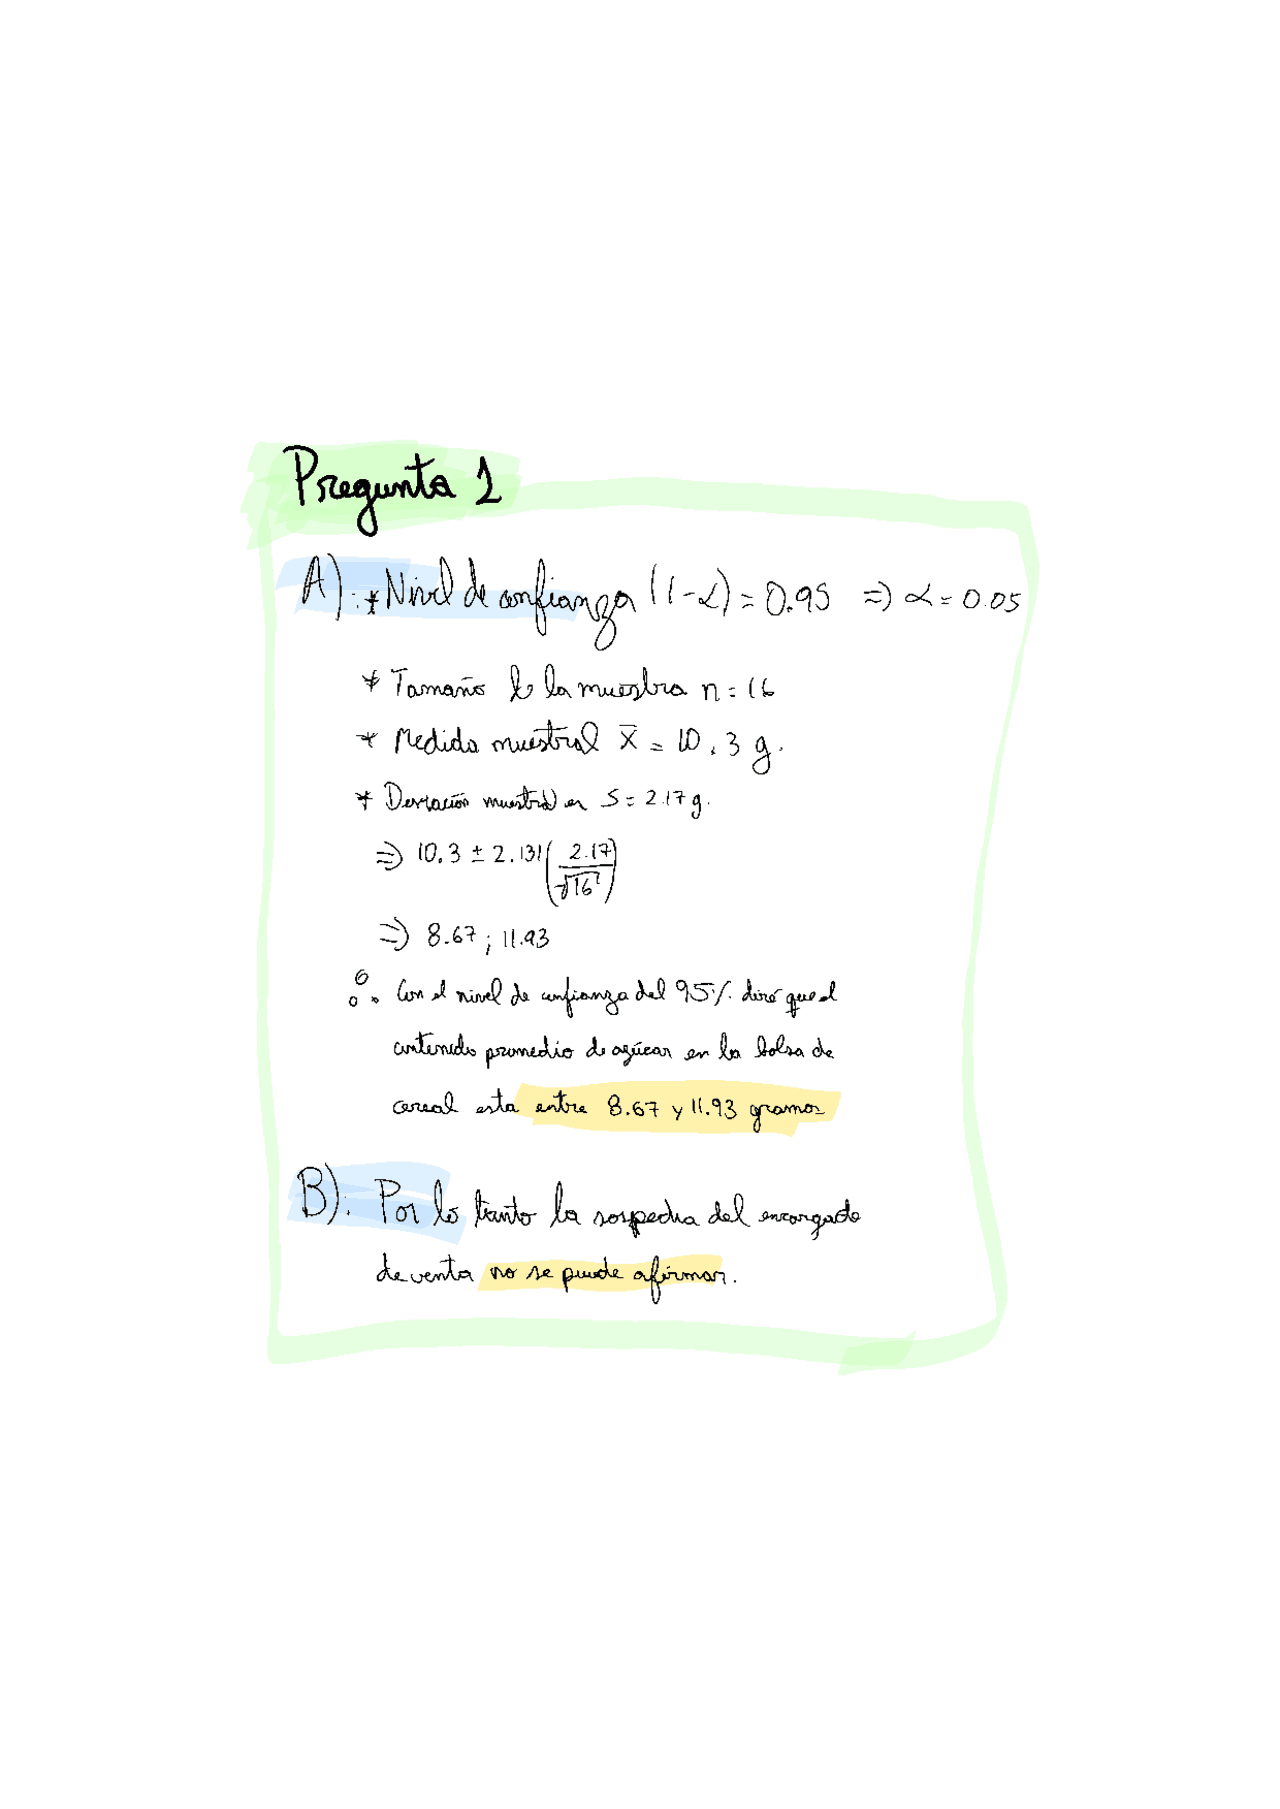 Pregunta 1
A): * Nivel de confianza (1-α) = 0.95 => α = 0.05
* Tamaño de la muestra n = 16
* Medida muestral x̄ = 10.3 g.
* Desviación muestral es S = 2.17 g.
=> 10.3 ± 2.131 (2.17/√16)
=> 8.67 ; 11.93
∴ Con el nivel de confianza del 95% diré que el
contenido promedio de azúcar en la bolsa de
cereal esta entre 8.67 y 11.93 gramos
B): Por lo tanto la sospecha del encargado
de venta no se puede afirmar.